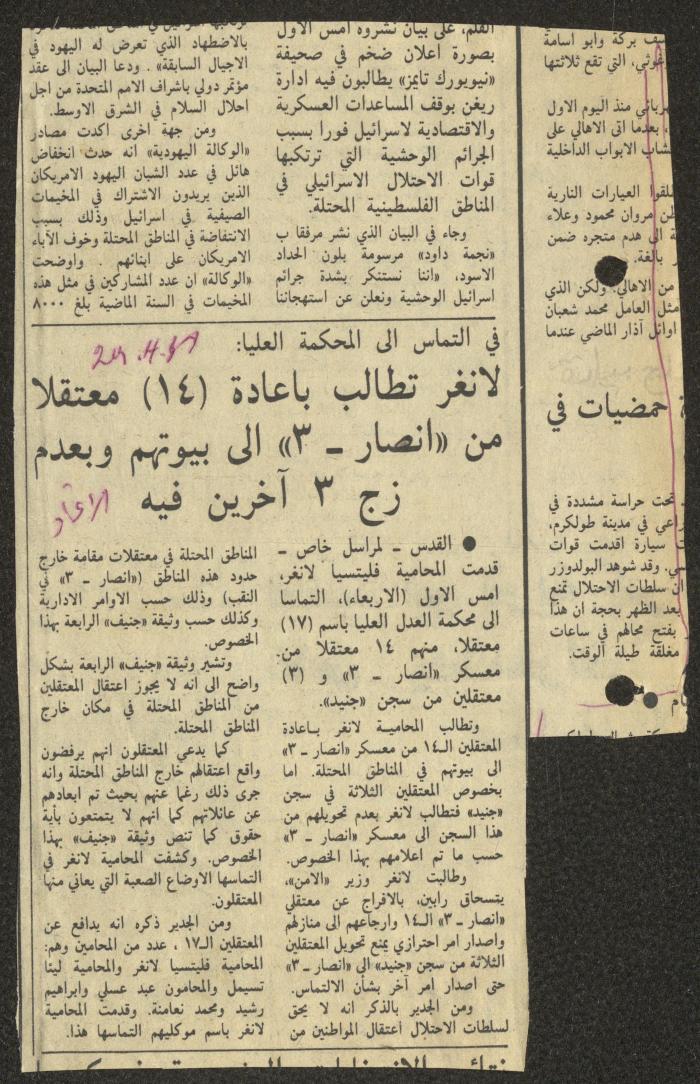 القلم، على بيان نشروه امس الاول
بصورة اعلان ضخم في صحيفة
«نيويورك تايمز» يطالبون فيه ادارة
ريغن بوقف المساعدات العسكرية
والاقتصادية لاسرائيل فورا بسبب
الجرائم الوحشية التي ترتكبها
قوات الاحتلال الاسرائيلي في
المناطق الفلسطينية المحتلة.
وجاء في البيان الذي نشر مرفقا ب
«نجمة داود» مرسومة بلون الحداد
الاسود، «اننا نستنكر بشدة جرائم
اسرائيل الوحشية ونعلن عن استهجاننا
بالاضطهاد الذي تعرض له اليهود في
الاجيال السابقة». ودعا البيان الى عقد
مؤتمر دولي باشراف الامم المتحدة من اجل
احلال السلام في الشرق الاوسط.
ومن جهة اخرى اكدت مصادر
«الوكالة اليهودية» انه حدث انخفاض
هائل في عدد الشبان اليهود الامريكان
الذين يريدون الاشتراك في المخيمات
الصيفية في اسرائيل وذلك بسبب
الانتفاضة في المناطق المحتلة وخوف الآباء
الامريكان على ابنائهم . واوضحت
«الوكالة» ان عدد المشاركين في مثل هذه
المخيمات في السنة الماضية بلغ ٨٠٠٠
في التماس الى المحكمة العليا:
لانغر تطالب باعادة (١٤) معتقلا
من «انصار ـ ٣» الى بيوتهم وبعدم
زج ٣ آخرين فيه
الاتحاد
● القدس ـ لمراسل خاص ـ
قدمت المحامية فليتسيا لانغر،
امس الاول (الاربعاء)، التماسا
الى محكمة العدل العليا باسم (١٧)
معتقلا، منهم ١٤ معتقلا من
معسكر «انصار ـ ٣» و (٣)
معتقلين من سجن «جنيد».
وتطالب المحامية لانغر باعادة
المعتقلين الـ١٤ من معسكر «انصار ـ ٣»
الى بيوتهم في المناطق المحتلة. اما
بخصوص المعتقلين الثلاثة في سجن
«جنيد» فتطالب لانغر بعدم تحويلهم من
هذا السجن الى معسكر «انصار ـ ٣»
حسب ما تم اعلامهم بهذا الخصوص.
وطالبت لانغر وزير «الامن»،
يتسحاق رابين، بالافراج عن معتقلي
«انصار ـ ٣» الـ١٤ وارجاعهم الى منازلهم
واصدار امر احترازي يمنع تحويل المعتقلين
الثلاثة من سجن «جنيد» الى «انصار ـ ٣»
حتى اصدار امر آخر بشأن الالتماس.
ومن الجدير بالذكر انه لا يحق
لسلطات الاحتلال أعتقال المواطنين من
المناطق المحتلة في معتقلات مقامة خارج
حدود هذه المناطق («انصار ـ ٣» في
النقب) وذلك حسب الاوامر الادارية
وكذلك حسب وثيقة «جنيف» الرابعة بهذا
الخصوص.
وتشير وثيقة «جنيف» الرابعة بشكل
واضح الى انه لا يجوز اعتقال المعتقلين
من المناطق المحتلة في مكان خارج
المناطق المحتلة.
كما يدعي المعتقلون انهم يرفضون
واقع اعتقالهم خارج المناطق المحتلة وانه
جرى ذلك رغما عنهم بحيث تم ابعادهم
عن عائلاتهم كما انهم لا يتمتعون بأية
حقوق كما تنص وثيقة «جنيف» بهذا
الخصوص. وكشفت المحامية لانغر في
التماسها الاوضاع الصعبة التي يعاني منها
المعتقلون.
ومن الجدير ذكره انه يدافع عن
المعتقلين الـ١٧ ، عدد من المحامين وهم:
المحامية فليتسيا لانغر والمحامية ليئا
تسيمل والمحامون عبد عسلي وابراهيم
رشيد ومحمد نعامنة. وقدمت المحامية
لانغر باسم موكليهم التماسها هذا.
بركة وابو اسامة
التي تقع ثلاثتها
منذ اليوم الاول
بعدما اتى الاهالي على
الابواب الداخلية
العيارات النارية
مروان محمود وعلاء
الى هدم متجره ضمن
بالغة.
من الاهالي. ولكن الذي
مثل العامل محمد شعبان
اوائل آذار الماضي عندما
حمضيات في
تحت حراسة مشددة في
في مدينة طولكرم،
سيارة اقدمت قوات
وقد شوهد البولدوزر
ان سلطات الاحتلال تمنع
بعد الظهر بحجة ان هذا
بفتح محالهم في ساعات
مغلقة طيلة الوقت.